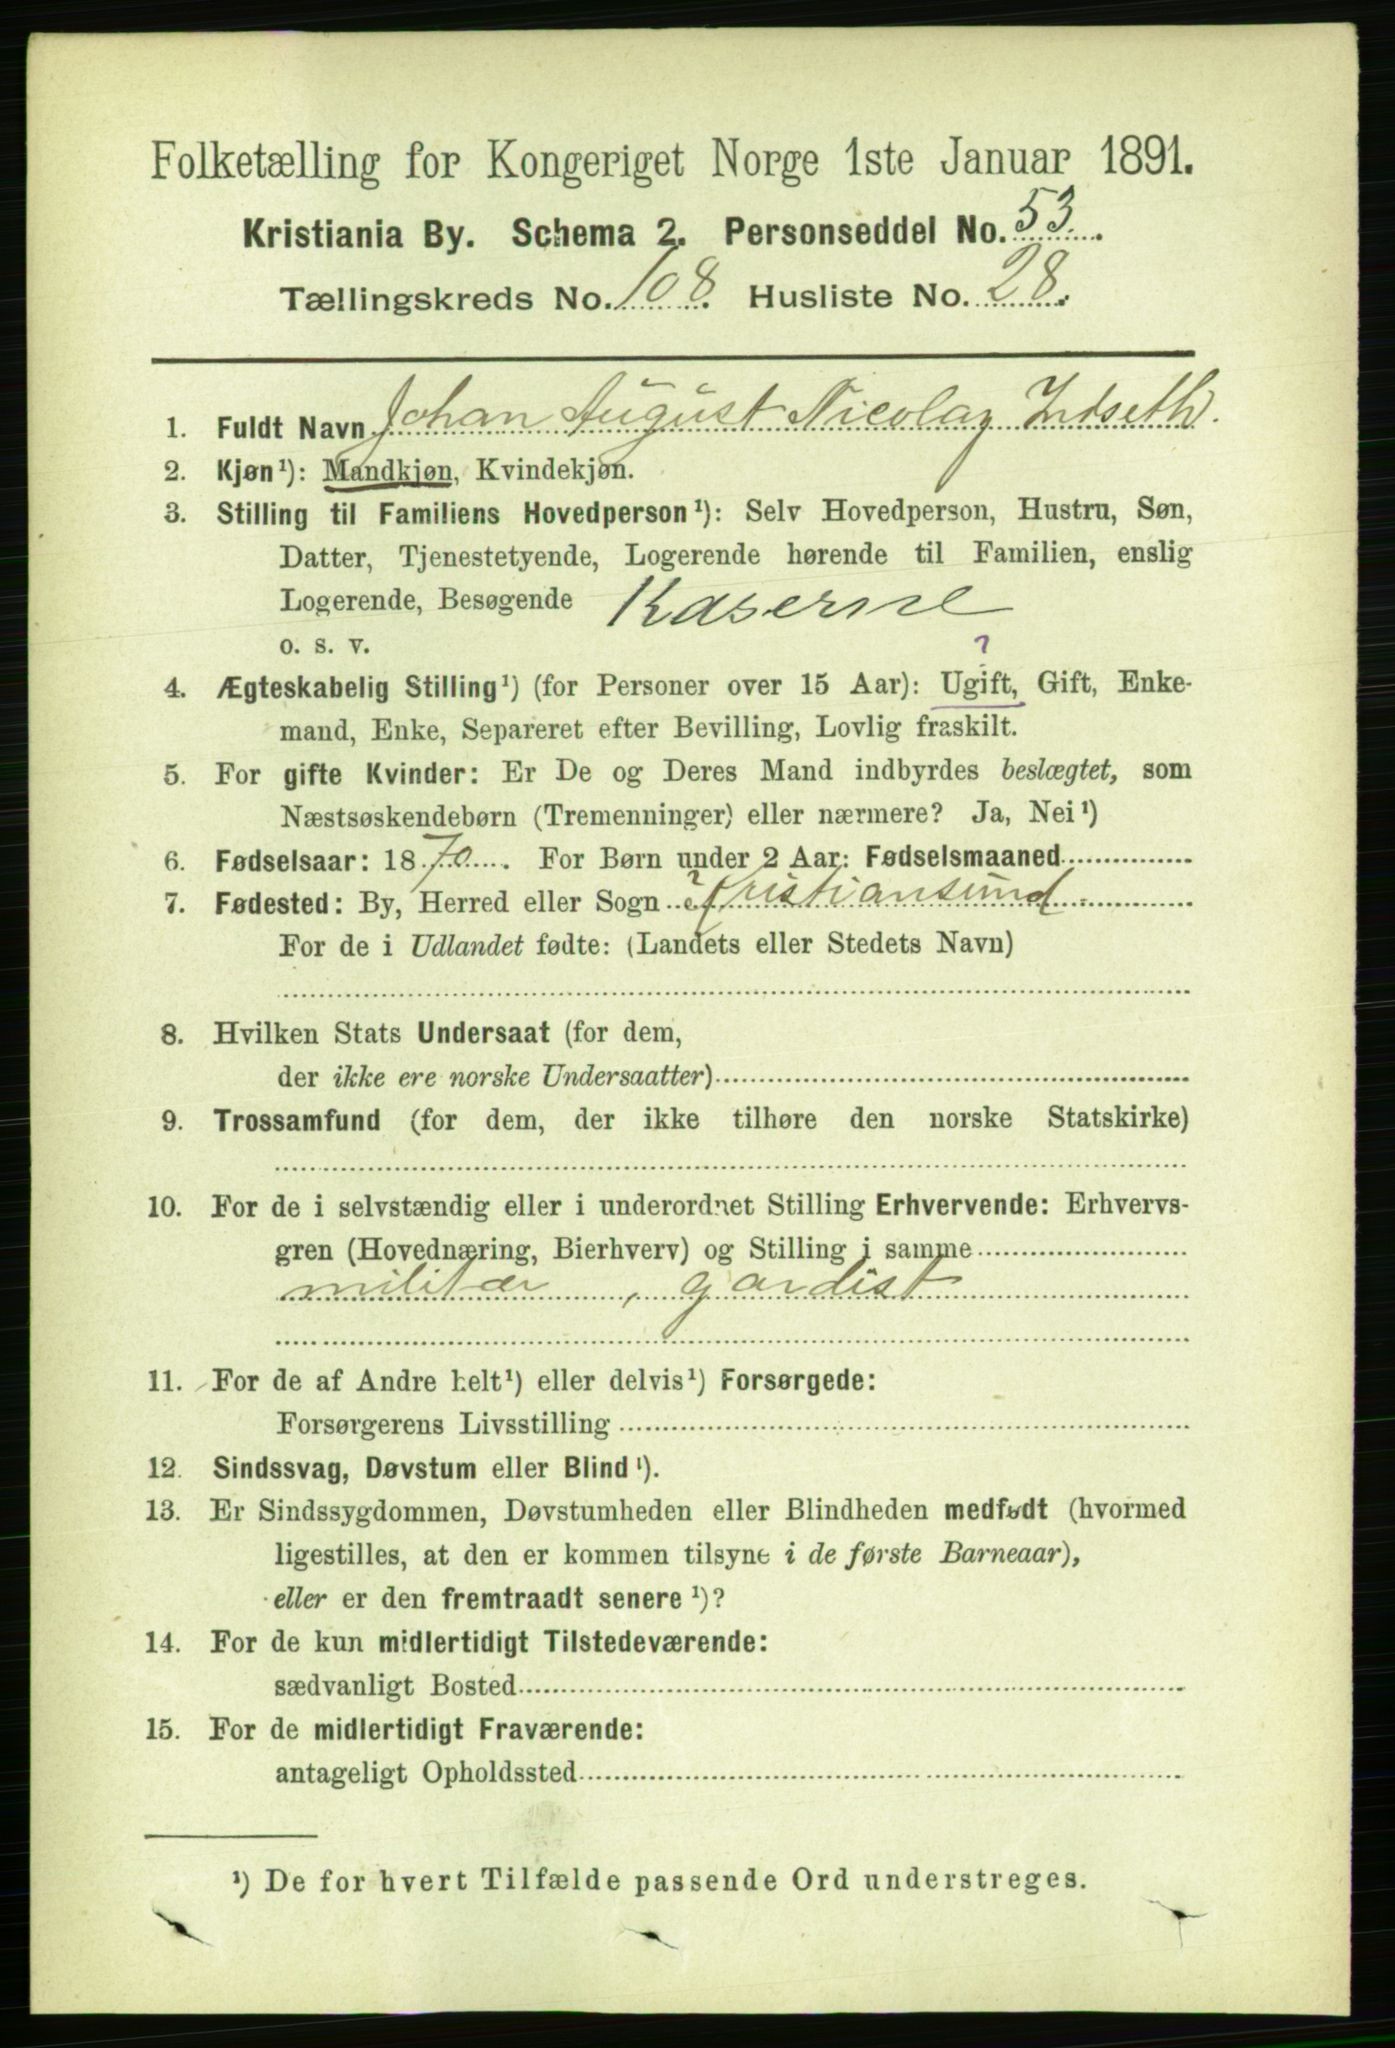 Folketælling for Kongeriget Norge 1ste Januar 1891.
Kristiania By. Schema 2. Personseddel No. 53.
Tællingskreds No. 108. Husliste No. 28.
1. Fuldt Navn Johan August Nicolay Indseth.
2. Kjøn¹): Mandkjøn, Kvindekjøn.
3. Stilling til Familiens Hovedperson¹): Selv Hovedperson, Hustru, Søn,
Datter, Tjenestetyende, Logerende hørende til Familien, enslig
Logerende, Besøgende Kaserne
o. s. v.
?
4. Ægteskabelig Stilling¹) (for Personer over 15 Aar): Ugift, Gift, Enke-
mand, Enke, Separeret efter Bevilling, Lovlig fraskilt.
5. For gifte Kvinder: Er De og Deres Mand indbyrdes beslægtet, som
Næstsøskendebørn (Tremenninger) eller nærmere? Ja, Nei¹)
6. Fødselsaar: 1870. For Børn under 2 Aar: Fødselsmaaned
7. Fødested: By, Herred eller Sogn Kristiansund
For de i Udlandet fødte: (Landets eller Stedets Navn)
8. Hvilken Stats Undersaat (for dem,
der ikke ere norske Undersaatter)
9. Trossamfund (for dem, der ikke tilhøre den norske Statskirke)
10. For de i selvstændig eller i underordnet Stilling Erhvervende: Erhvervs-
gren (Hovednæring, Bierhverv) og Stilling i samme
militær, gardist
11. For de af Andre helt¹) eller delvis¹) Forsørgede:
Forsørgerens Livsstilling
12. Sindssvag, Døvstum eller Blind¹).
13. Er Sindssygdommen, Døvstumheden eller Blindheden medfødt (hvormed
ligestilles, at den er kommen tilsyne i de første Barneaar),
eller er den fremtraadt senere¹)?
14. For de kun midlertidigt Tilstedeværende:
sædvanligt Bosted
15. For de midlertidigt Fraværende:
antageligt Opholdssted
¹) De for hvert Tilfælde passende Ord understreges.